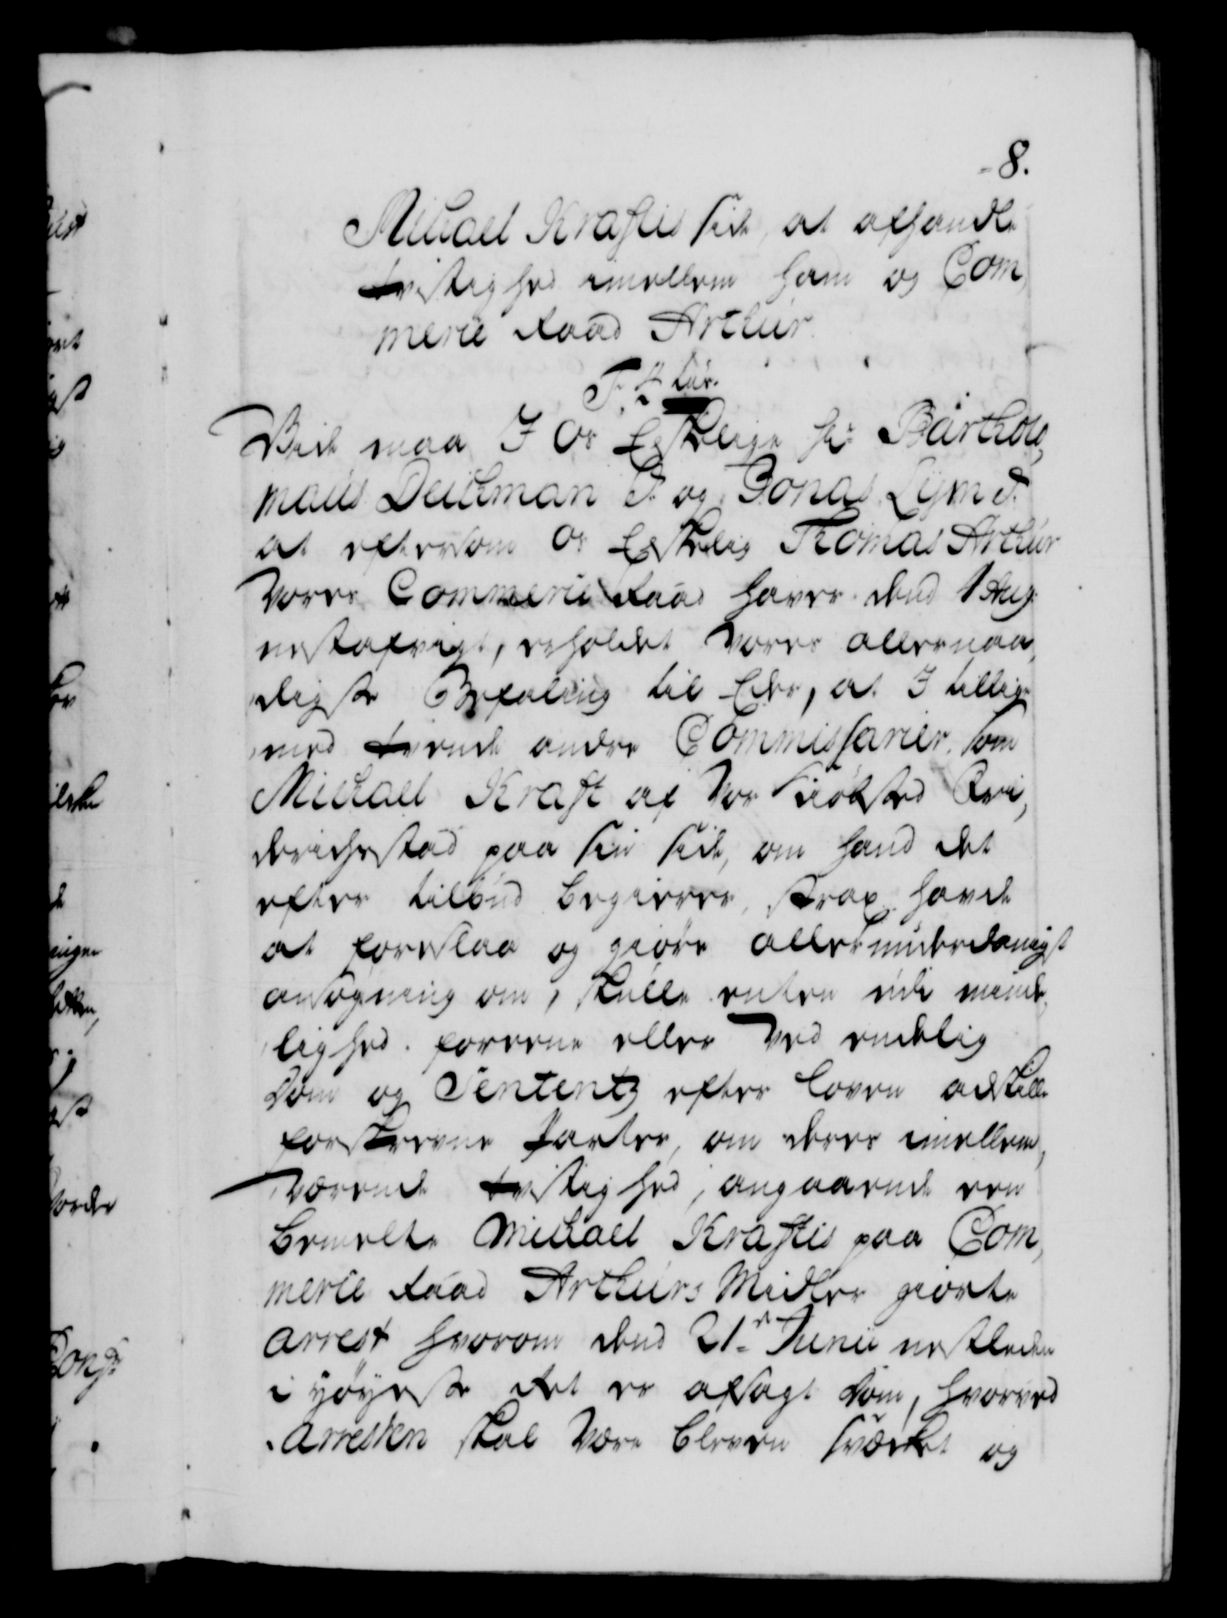 8.
Michael Kraftis side, at afhandle
tvistighed imellem ham og Com,
merce Raad Arthur.
F. 4 tus.
Vide maa I Os Elskelige Hr: Bartholo,
mæus Deichman S. og Jonas Lym S.
at eftersom Os Elskelig Thomas Arthur
Vores Commercie Raad haver dend 1 Aug:
nestafvigt, erholdet Vores allernaa,
digste Befaling til Eder, at I tillige
med tvende andre Commissarier som
Michael Kraft af Vor Kiøbsted Fri,
derichstad paa sin side, om hand det
efter tilbud begierer, strax hafde
at foreslaa og giøre allerunderdanigst
ansøgning om, skulle enten udi minde,
lighed foreene eller ved endelig
Dom og Sententz efter loven adskille
forskrevne Parter, om deres imellem,
Værende tvistighed, angaaende een
bemelte Michael Kraftis paa Com,
merce Raad Arthurs Midler giorte
arrest hvorom dend 21de Junii nestleden
i høyeste Ret er afsagt Dom, hvorved
Arresten skal Være bleven svæket og